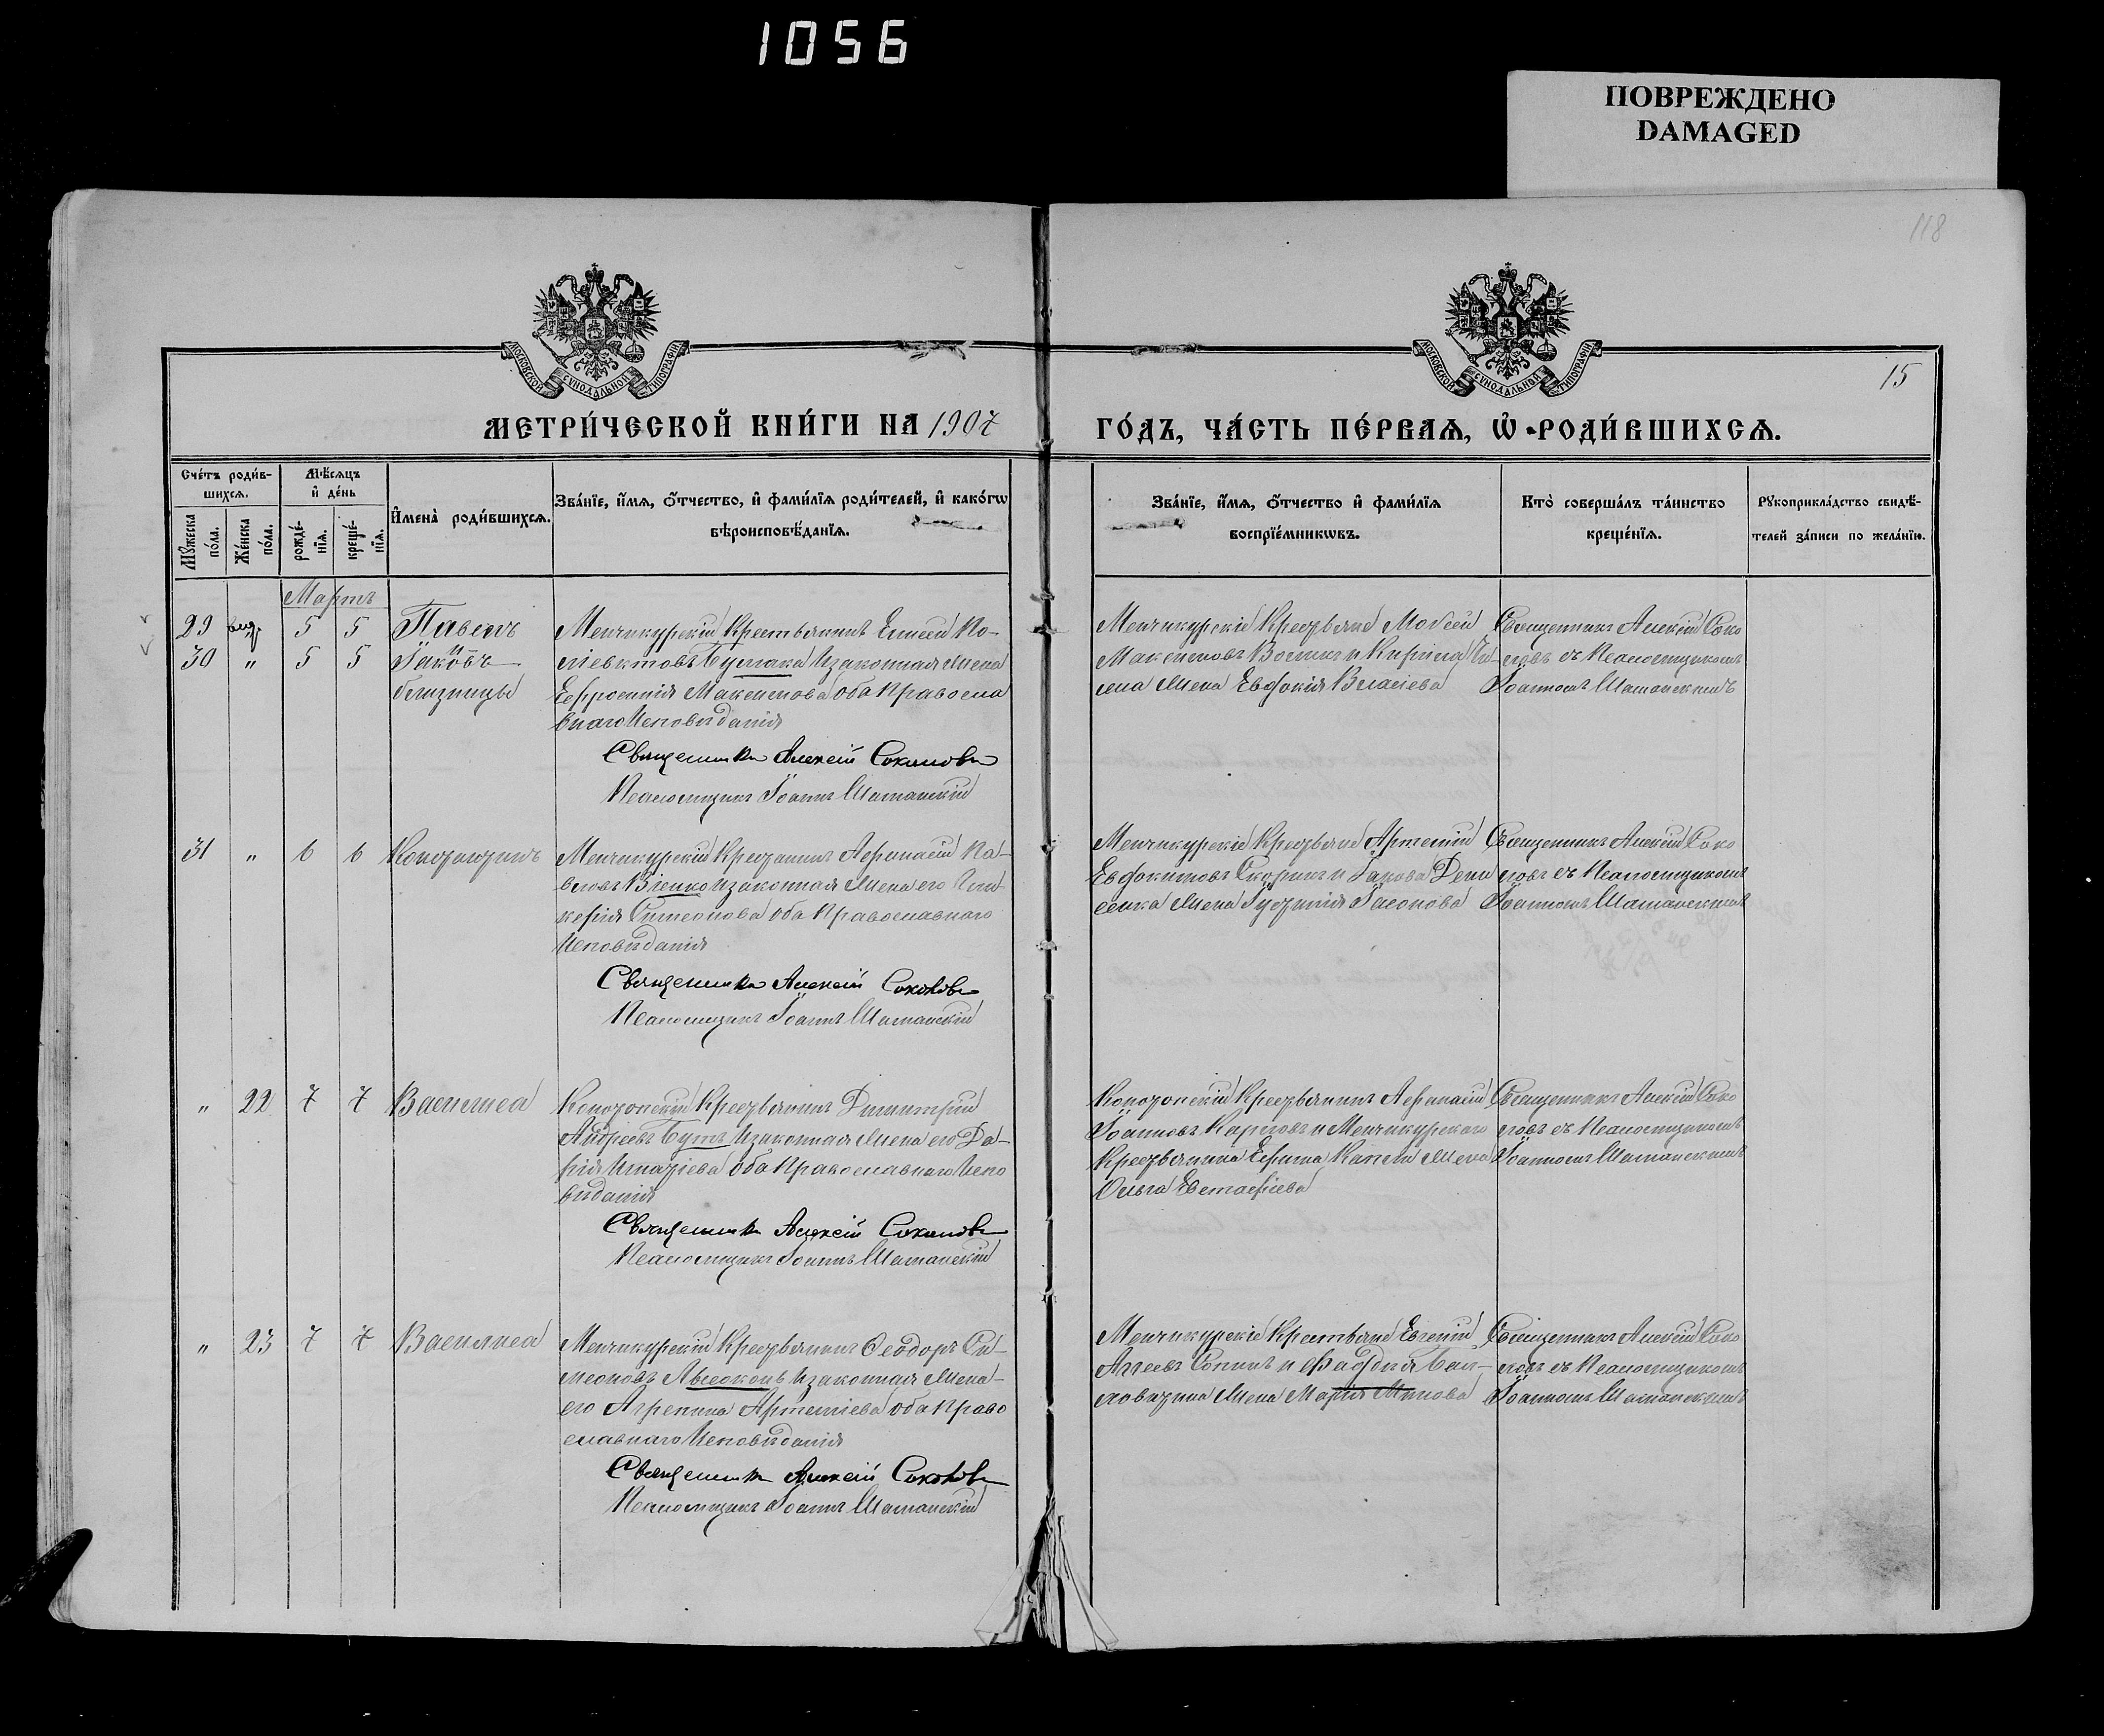 1056
ПОВРЕЖДЕНО
DAMAGED
118
МОСКОВСКОЙ СУНОДАЛЬНОЙ ТИПОГРАФІИ
МОСКОВСКОЙ СУНОДАЛЬНОЙ ТИПОГРАФІИ
15
МЕТРИ́ЧЕСКОЙ КНИ́ГИ НА 1907
ГО́ДЪ, ЧА́СТЬ ПЕ́РВАѦ, Ѡ РОДИ́ВШИХСѦ.
Сче́тъ роди́в-
шихсѧ.
Мѣ́сѧцъ
и҆ де́нь
Мꙋ́жеска
по́ла.
Же́нска
по́ла.
рожде́-
нїѧ.
креще́-
нїѧ.
И҆мена̀ роди́вшихсѧ.
Зва́нїе, и҆́мѧ, ѻ҆́тчество, и҆ фами́лїѧ роди́телей, и҆ како́гѡ
вѣроисповѣ́данїѧ.
Зва́нїе, и҆́мѧ, ѻ҆́тчество и҆ фами́лїѧ
воспрїе́мникѡвъ.
Кто̀ соверша́лъ та́инство
креще́нїѧ.
Рꙋкоприкла́дство свидѣ́-
телей за́писи по жела́нїю.
Мартъ
29 5 5 Павелъ
30 " 5 5 Іаковъ
близнецы
Менчикурскій Крестьянинъ Елисей По-
лиевктовъ Бутака И законная Жена
Ефросинія Максимова Оба Правосла
внаго Исповѣданія
Священникъ Алексій Соколовъ
Псаломщикъ Іоаннъ Шатанскій
Менчикурскіе Крестьяне Мовсей
Максимовъ и Кирила
жена Евдокія Власіева
Священникъ Алексій Соко
ловъ съ Псаломщикомъ
Іоанномъ Шатанскимъ
31 " 6 6 Конс
Менчикурскій Крестьянинъ Афанасій Па-
вловъ Віенко И законная Жена его Гли-
керія Симеонова оба Православнаго
Исповѣданія
Священникъ Алексій Соколовъ
Псаломщикъ Іоаннъ Шатанскій
Менчикурскіе Крестьяне Артемій
Евдокимовъ Скорикъ и Іакова Дени
сенка Жена Іустинія Іасонова
Священникъ Алексій Соко
ловъ съ Псаломщикомъ
Іоанномъ Шатанскимъ
" 22 7 7 Василиса
Крестьянинъ Димитрій
Андреевъ Бутъ И законная Жена его Да-
рія Игнатіева Оба Православнаго Испо
вѣданія
Священникъ Алексій Соколовъ
Псаломщикъ Іоаннъ Шатанскій
Крестьянинъ Афанасій
Іоанновъ Карповъ и Менчикурскаго
Крестьянина Ефима Жена
Ольга Евстафіева
Священникъ Алексій Соко
ловъ съ Псаломщикомъ
Іоанномъ Шатанскимъ
" 23 7 7 Василиса
Менчикурскій Крестьянинъ Ѳеодоръ Си-
меоновъ Высоконь И законная Жена
его Агрепина Артеміева оба Право
славнаго Исповѣданія
Священникъ Алексій Соколовъ
Псаломщикъ Іоаннъ Шатанскій
Менчикурскіе Крестьяне Евгеній
Аггеевъ Сопинъ и Фаддея Бал-
Жена Марія
Священникъ Алексій Соко
ловъ съ Псаломщикомъ
Іоанномъ Шатанскимъ